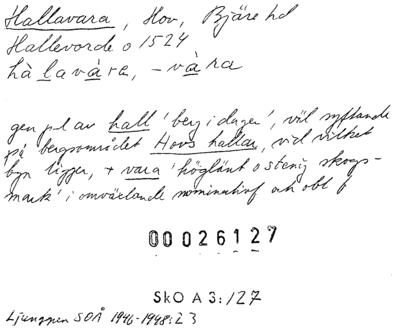 Hallavara, Hov, Bjäre hd
Hallevorde o 1524
hàlavàra, -vàra
gen pl av hall 'berg i dagen', väl syftande
på bergsområdet Hovs hallar, vid vilket
byn ligger, + vara 'höglänt o stenig skogs-
mark' i omväxlande nominativf och obl f
00026127
SkO A 3:127
Ljunggren SOÅ 1946-1948:23